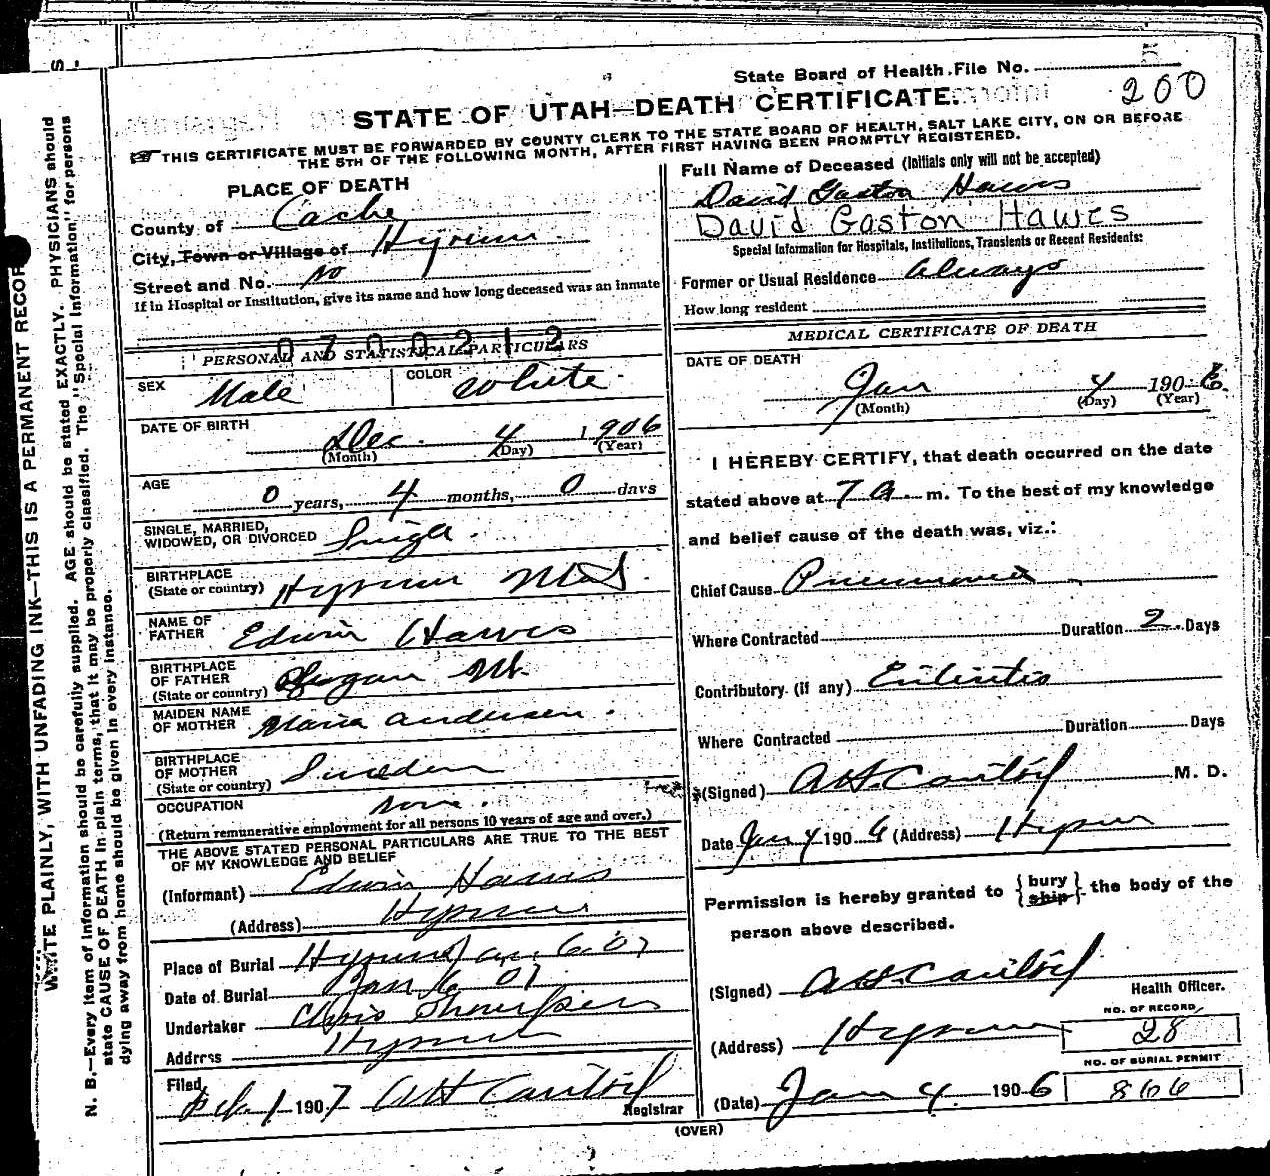 State Board of Health File No.
200
STATE OF UTAH—DEATH CERTIFICATE.
THIS CERTIFICATE MUST BE FORWARDED BY COUNTY CLERK TO THE STATE BOARD OF HEALTH, SALT LAKE CITY, ON OR BEFORE
THE 5TH OF THE FOLLOWING MONTH, AFTER FIRST HAVING BEEN PROMPTLY REGISTERED.
PLACE OF DEATH
County of Cache
City, Town or Village of Hyrum
Street and No. no
If in Hospital or Institution, give its name and how long deceased was an inmate
0700212
PERSONAL AND STATISTICAL PARTICULARS
SEX Male COLOR White
DATE OF BIRTH Dec. 4 1906
(Month) (Day) (Year)
AGE 0 years, 4 months, 0 days
SINGLE, MARRIED,
WIDOWED, OR DIVORCED Single
BIRTHPLACE
(State or country) Hyrum
NAME OF
FATHER Edwin Hawes
BIRTHPLACE
OF FATHER
(State or country)
MAIDEN NAME
OF MOTHER Maria Andersen.
BIRTHPLACE
OF MOTHER
(State or country) Sweden
OCCUPATION none.
(Return remunerative employment for all persons 10 years of age and over.)
THE ABOVE STATED PERSONAL PARTICULARS ARE TRUE TO THE BEST
OF MY KNOWLEDGE AND BELIEF
(Informant) Edwin Hawes
(Address) Hyrum
Place of Burial Hyrum Jan 6-07
Date of Burial Jan 6 07
Undertaker
Address Hyrum
Filed Feb. 1 1907 Registrar
Full Name of Deceased (Initials only will not be accepted)
David Gaston Hawes
David Gaston Hawes
Special Information for Hospitals, Institutions, Transients or Recent Residents:
Former or Usual Residence Always
How long resident
MEDICAL CERTIFICATE OF DEATH
DATE OF DEATH
Jan 4 1906
(Month) (Day) (Year)
I HEREBY CERTIFY, that death occurred on the date
stated above at 7 a. m. To the best of my knowledge
and belief cause of the death was, viz.:
Chief Cause Pneumonia
Where Contracted Duration 2 Days
Contributory (if any)
Where Contracted Duration Days
(Signed) M. D.
Date Jan 4 1906 (Address) Hyrum
Permission is hereby granted to {bury ship} the body of the
person above described.
(Signed)
Health Officer.
(Address) Hyrum
NO. OF RECORD
28
NO. OF BURIAL PERMIT
866
(Date) Jan 4. 1906
(OVER)
WRITE PLAINLY, WITH UNFADING INK—THIS IS A PERMANENT RECOR
N. B.—Every item of information should be carefully supplied. AGE should be stated EXACTLY. PHYSICIANS should
state CAUSE OF DEATH in plain terms, that it may be properly classified. The "Special Information" for persons
dying away from home should be given in every instance.